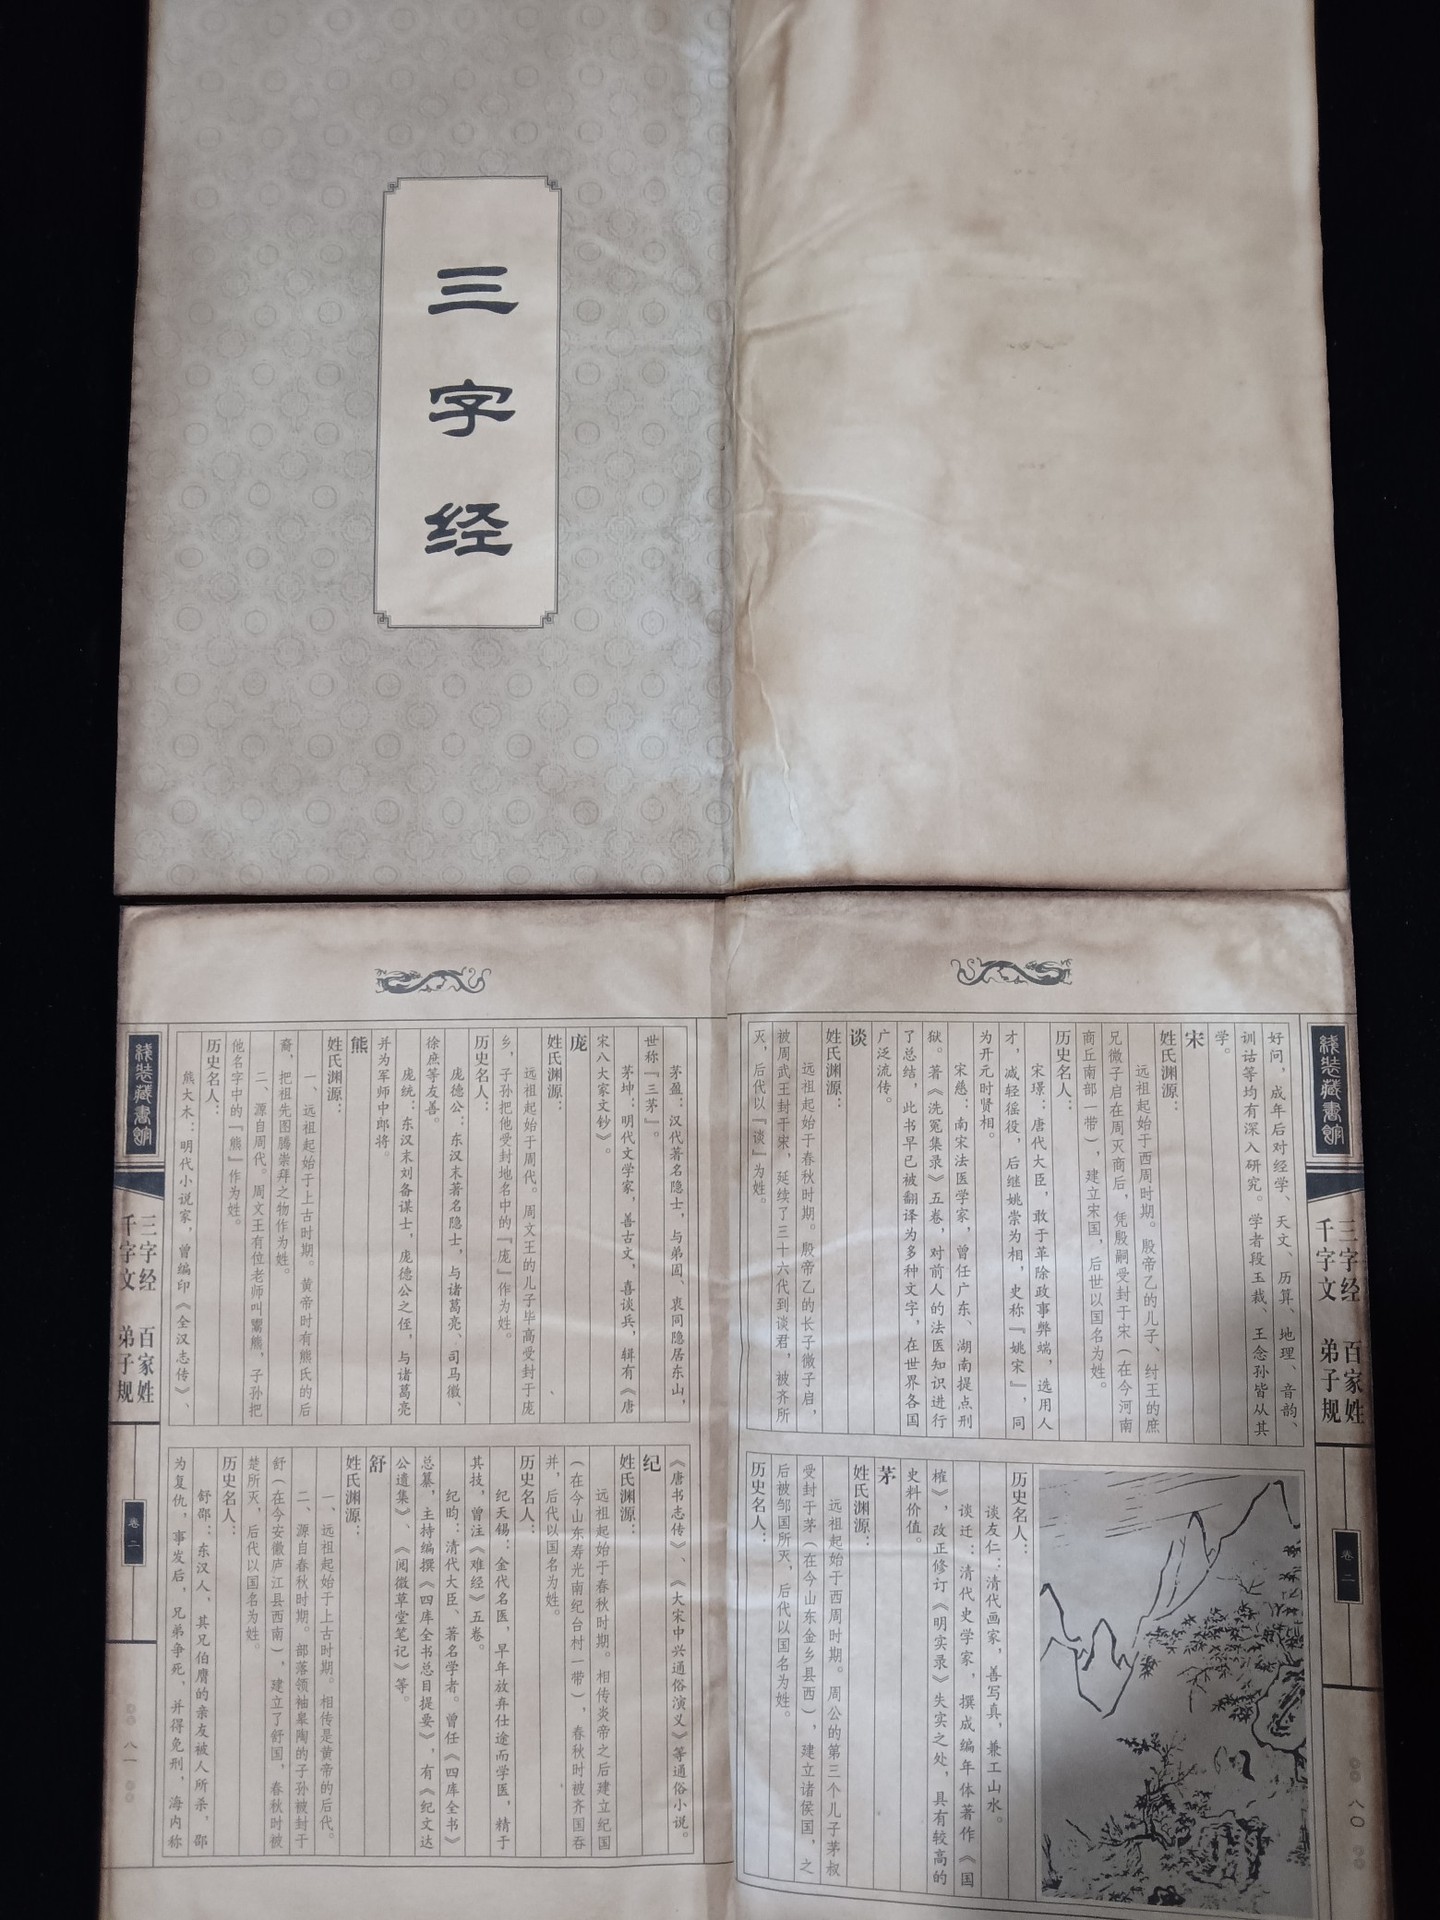 三字经
线装藏书馆
三字经 百家姓
千字文 弟子规
卷二
八〇
好问，成年后对经学、天文、历算、地理、音韵、
训诂等均有深入研究。学者段玉裁、王念孙皆从其
学。
宋
姓氏渊源：
远祖起始于西周时期。殷帝乙的儿子、纣王的庶
兄微子启在周灭商后，凭殷嗣受封于宋（在今河南
商丘南部一带），建立宋国，后世以国名为姓。
历史名人：
宋璟：唐代大臣，敢于革除政事弊端，选用人
才，减轻徭役，后继姚崇为相，史称『姚宋』，同
为开元时贤相。
宋慈：南宋法医学家，曾任广东、湖南提点刑
狱。著《洗冤集录》五卷，对前人的法医知识进行
了总结，此书早已被翻译为多种文字，在世界各国
广泛流传。
谈
姓氏渊源：
远祖起始于春秋时期。殷帝乙的长子微子启，
被周武王封于宋，延续了三十六代到谈君，被齐所
灭，后代以『谈』为姓。
历史名人：
谈友仁：清代画家，善写真，兼工山水。
谈迁：清代史学家，撰成编年体著作《国
榷》，改正修订《明实录》失实之处，具有较高的
史料价值。
茅
姓氏渊源：
远祖起始于西周时期。周公的第三个儿子茅叔
受封于茅（在今山东金乡县西），建立诸侯国，之
后被邹国所灭，后代以国名为姓。
历史名人：
茅盈：汉代著名隐士，与弟固、衷同隐居东山，
世称『三茅』。
茅坤：明代文学家，善古文，喜谈兵，辑有《唐
宋八大家文钞》。
庞
姓氏渊源：
远祖起始于周代。周文王的儿子毕高受封于庞
乡，子孙把他受封地名中的『庞』作为姓。
历史名人：
庞德公：东汉末著名隐士，与诸葛亮、司马徽、
徐庶等友善。
庞统：东汉末刘备谋士，庞德公之侄，与诸葛亮
并为军师中郎将。
熊
姓氏渊源：
一、远祖起始于上古时期。黄帝时有熊氏的后
裔，把祖先图腾崇拜之物作为姓。
二、源自周代。周文王有位老师叫鬻熊，子孙把
他名字中的『熊』作为姓。
历史名人：
熊大木：明代小说家，曾编印《全汉志传》、
《唐书志传》、《大宋中兴通俗演义》等通俗小说。
纪
姓氏渊源：
远祖起始于春秋时期。相传炎帝之后建立纪国
（在今山东寿光南纪台村一带），春秋时被齐国吞
并，后代以国名为姓。
历史名人：
纪天锡：金代名医，早年放弃仕途而学医，精于
其技，曾注《难经》五卷。
纪昀：清代大臣、著名学者。曾任《四库全书》
总纂，主持编撰《四库全书总目提要》，有《纪文达
公遗集》、《阅微草堂笔记》等。
舒
姓氏渊源：
一、远祖起始于上古时期。相传是黄帝的后代。
二、源自春秋时期。部落领袖皋陶的子孙被封于
舒（在今安徽庐江县西南），建立了舒国，春秋时被
楚所灭，后代以国名为姓。
历史名人：
舒邵：东汉人，其兄伯膺的亲友被人所杀，邵
为复仇，事发后，兄弟争死，并得免刑，海内称
线装藏书馆
三字经 百家姓
千字文 弟子规
卷二
八一